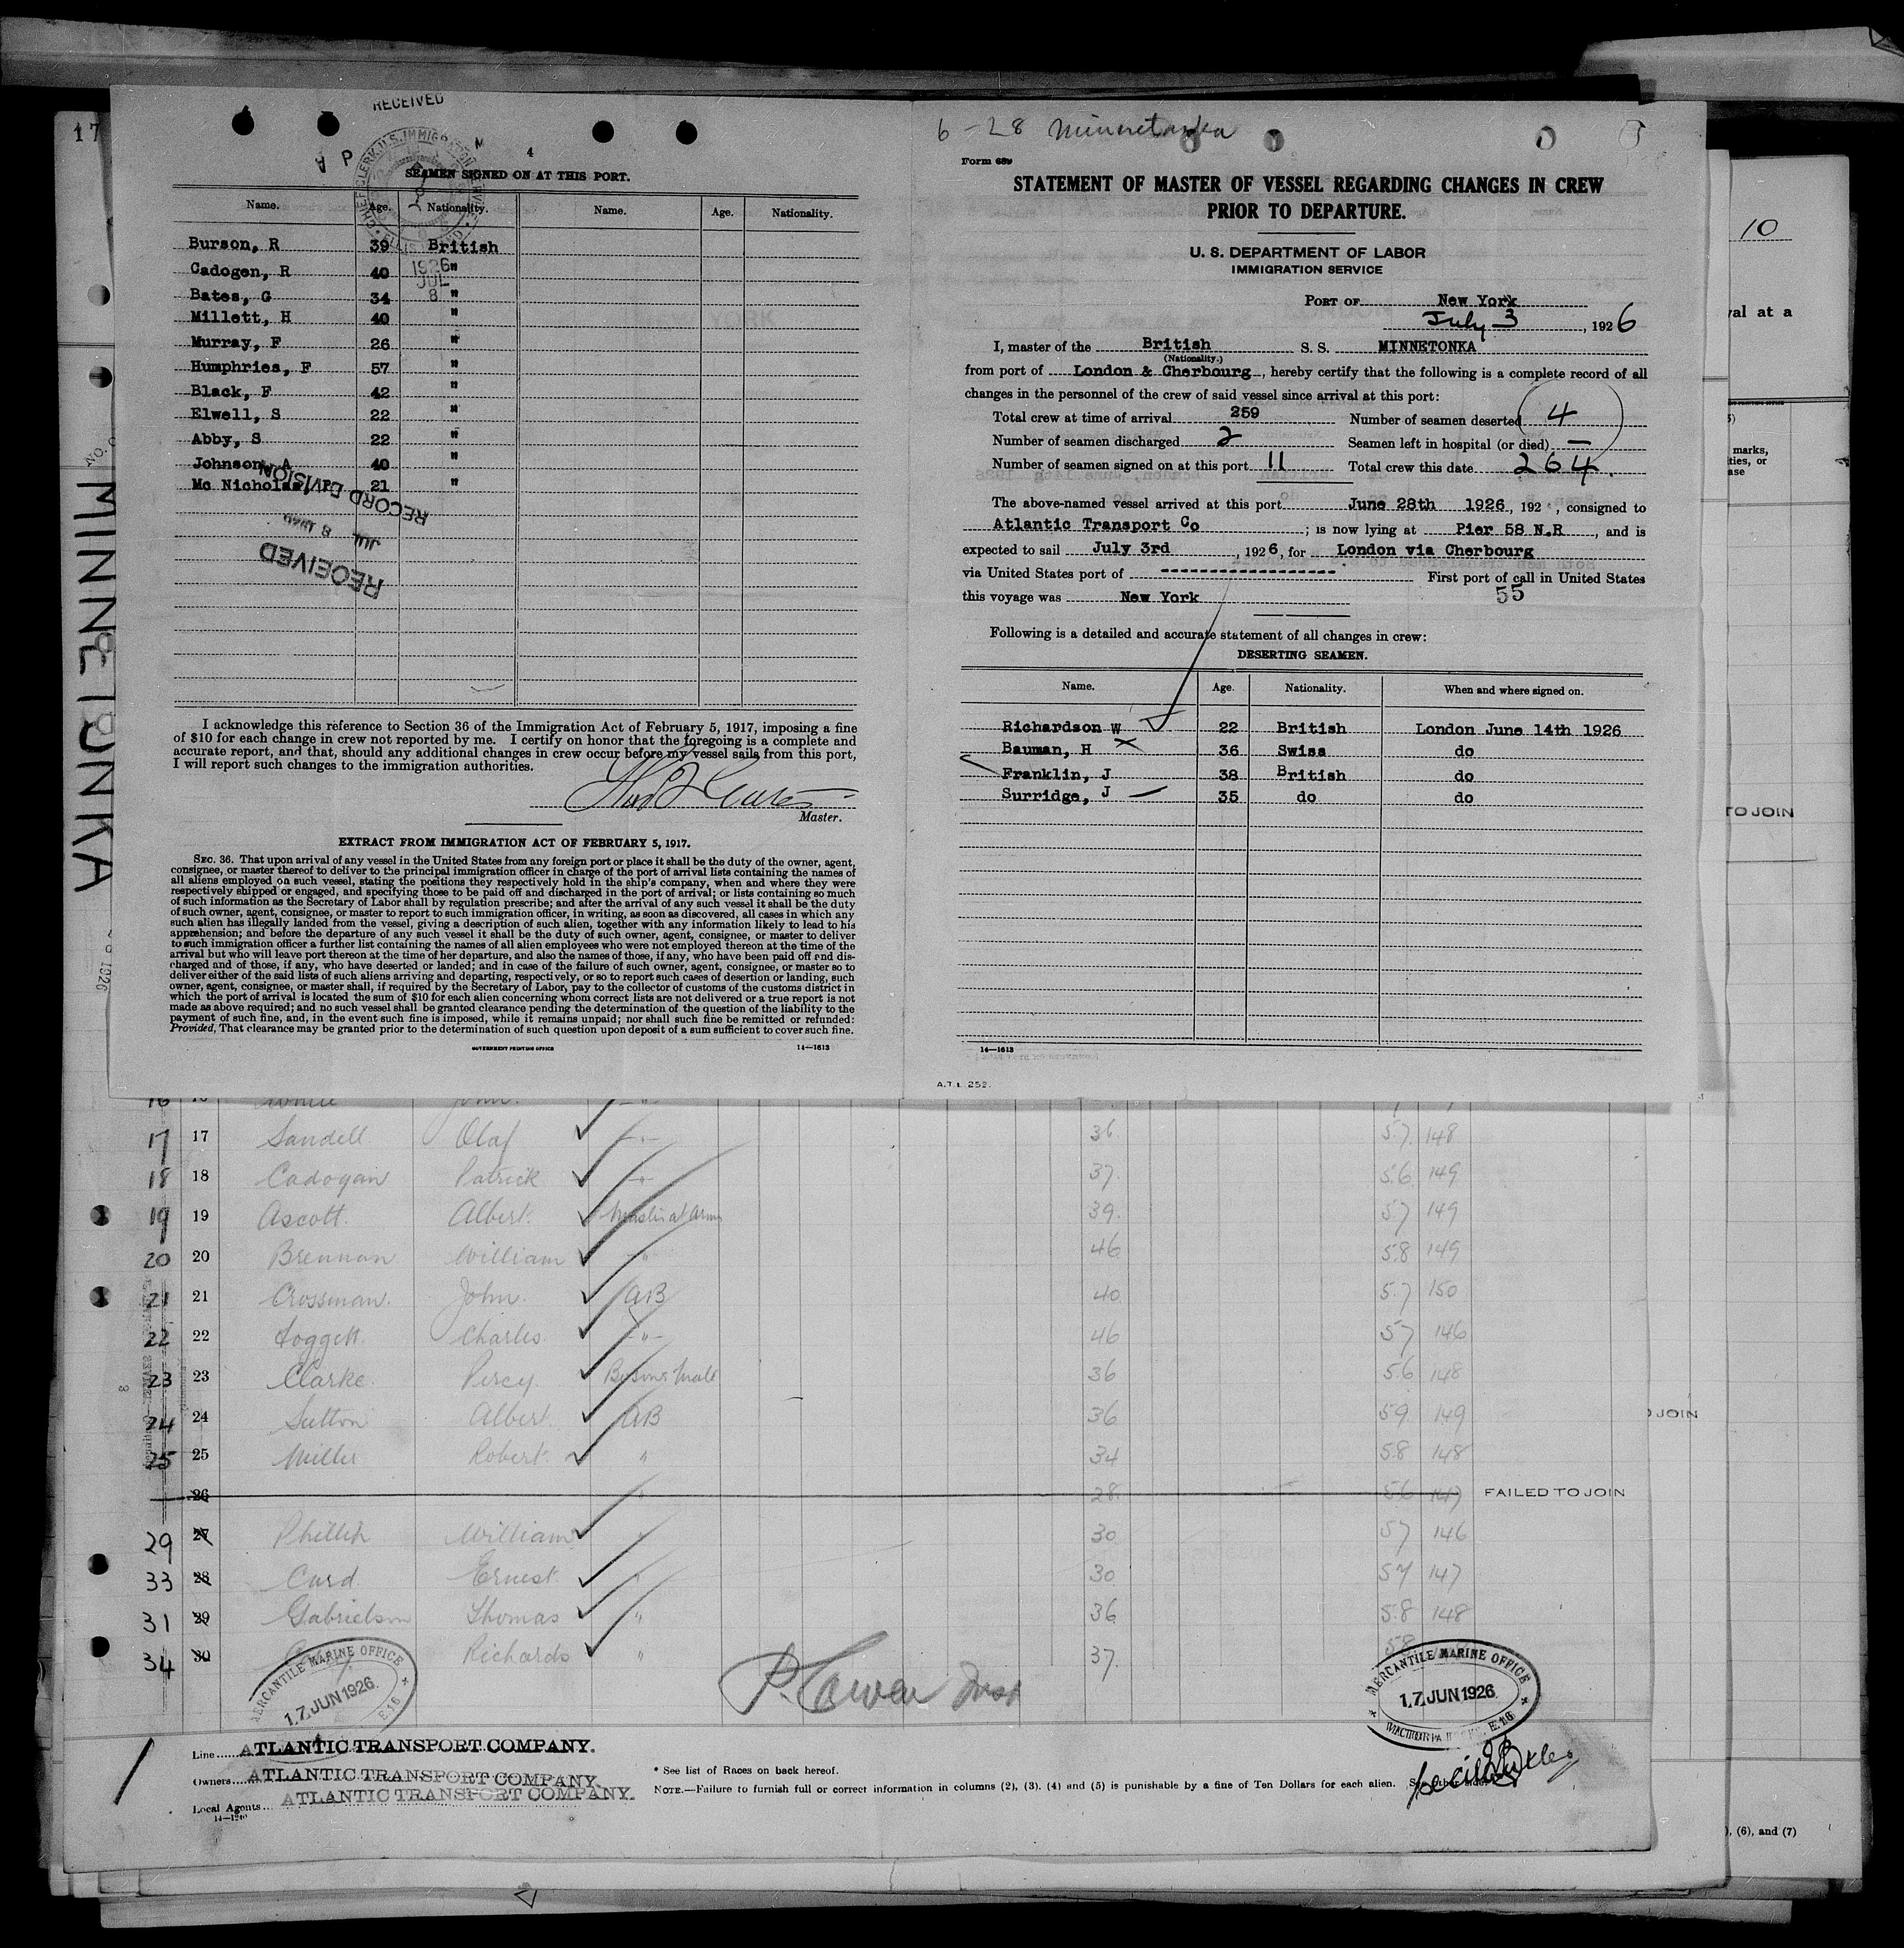 RECEIVED
4
SEAMEN SIGNED ON AT THIS PORT.
Name. Age. Nationality. Name. Age. Nationality.
Burson, R 39 British
Cadogen, R 40 "
Bates, G 34 "
Millett, H 40 "
Murray, F 26 "
Humphries, F 57 "
Black, F 42 "
Elwell, S 22 "
Abby, S 22 "
Johnson, A 40 "
Mc Nicholas 21 "
1926
JUL
8
RECORD DIVISION
JUL 8
RECEIVED
I acknowledge this reference to Section 36 of the Immigration Act of February 5, 1917, imposing a fine
of $10 for each change in crew not reported by me. I certify on honor that the foregoing is a complete and
accurate report, and that, should any additional changes in crew occur before my vessel sails from this port,
I will report such changes to the immigration authorities.
Master.
EXTRACT FROM IMMIGRATION ACT OF FEBRUARY 5, 1917.
SEC. 36. That upon arrival of any vessel in the United States from any foreign port or place it shall be the duty of the owner, agent,
consignee, or master thereof to deliver to the principal immigration officer in charge of the port of arrival lists containing the names of
all aliens employed on such vessel, stating the positions they respectively hold in the ship's company, when and where they were
respectively shipped or engaged, and specifying those to be paid off and discharged in the port of arrival; or lists containing so much
of such information as the Secretary of Labor shall by regulation prescribe; and after the arrival of any such vessel it shall be the duty
of such owner, agent, consignee, or master to report to such immigration officer, in writing, as soon as discovered, all cases in which any
such alien has illegally landed from the vessel, giving a description of such alien, together with any information likely to lead to his
apprehension; and before the departure of any such vessel it shall be the duty of such owner, agent, consignee, or master to deliver
to such immigration officer a further list containing the names of all alien employees who were not employed thereon at the time of the
arrival but who will leave port thereon at the time of her departure, and also the names of those, if any, who have been paid off and dis-
charged and of those, if any, who have deserted or landed; and in case of the failure of such owner, agent, consignee, or master so to
deliver either of the said lists of such aliens arriving and departing, respectively, or so to report such cases of desertion or landing, such
owner, agent, consignee, or master shall, if required by the Secretary of Labor, pay to the collector of customs of the customs district in
which the port of arrival is located the sum of $10 for each alien concerning whom correct lists are not delivered or a true report is not
made as above required; and no such vessel shall be granted clearance pending the determination of the question of the liability to the
payment of such fine, and, in the event such fine is imposed, while it remains unpaid; nor shall such fine be remitted or refunded:
Provided, That clearance may be granted prior to the determination of such question upon deposit of a sum sufficient to cover such fine.
GOVERNMENT PRINTING OFFICE 14—1613
6-28 Minnetonka
Form 689
STATEMENT OF MASTER OF VESSEL REGARDING CHANGES IN CREW
PRIOR TO DEPARTURE.
U. S. DEPARTMENT OF LABOR
IMMIGRATION SERVICE
PORT OF New York
July 3, 1926
I, master of the British S. S. MINNETONKA
(Nationality.)
from port of London & Cherbourg, hereby certify that the following is a complete record of all
changes in the personnel of the crew of said vessel since arrival at this port:
Total crew at time of arrival 259 Number of seamen deserted 4
Number of seamen discharged 2 Seamen left in hospital (or died) —
Number of seamen signed on at this port 11 Total crew this date 264.
The above-named vessel arrived at this port June 28th 1926, 192 , consigned to
Atlantic Transport Co ; is now lying at Pier 58 N.R , and is
expected to sail July 3rd , 1926, for London via Cherbourg
via United States port of ---------------- First port of call in United States
this voyage was New York 55
Following is a detailed and accurate statement of all changes in crew:
DESERTING SEAMEN.
Name. Age. Nationality. When and where signed on.
Richardson W 22 British London June 14th 1926
Bauman, H 36 Swiss do
Franklin, J 38 British do
Surridge, J 35 do do
14—1613
A.T.L. 252.
17
MINNETONKA
10
val at a
marks,
ties, or
ase
TO JOIN
O JOIN
), (6), and (7)
16 White John "
17 17 Sandell Olaf -"- 36. 5.7. 148
18 18 Cadogan Patrick -"- 37. 5.6 149
19 19 Ascott. Albert. Master at Arms 39. 5.7 149
20 20 Brennan William " 46 5.8 149
21 21 Crossman. John. AB 40 5.7 150
22 22 Foggett. Charles. -"- 46 57 146
23 23 Clarke. Percy. Bosuns Mate 36 5.6 148
24 24 Sutton Albert. AB 36 59 149
25 25 Miller Robert. " 34 58 148
26 " 28. 56 147 FAILED TO JOIN
29 27 William " 30 57 146
33 28 Card Ernest. " 30 57 147
31 29 Gabrielson Thomas " 36 5.8 148
34 30 Richards " 37. 58
MERCANTILE MARINE OFFICE
17 JUN 1926
E.16
MERCANTILE MARINE OFFICE
17 JUN 1926
E.16
Line ATLANTIC TRANSPORT COMPANY.
Owners ATLANTIC TRANSPORT COMPANY.
Local Agents ATLANTIC TRANSPORT COMPANY.
14—1240
* See list of Races on back hereof.
NOTE.—Failure to furnish full or correct information in columns (2), (3), (4) and (5) is punishable by a fine of Ten Dollars for each alien.